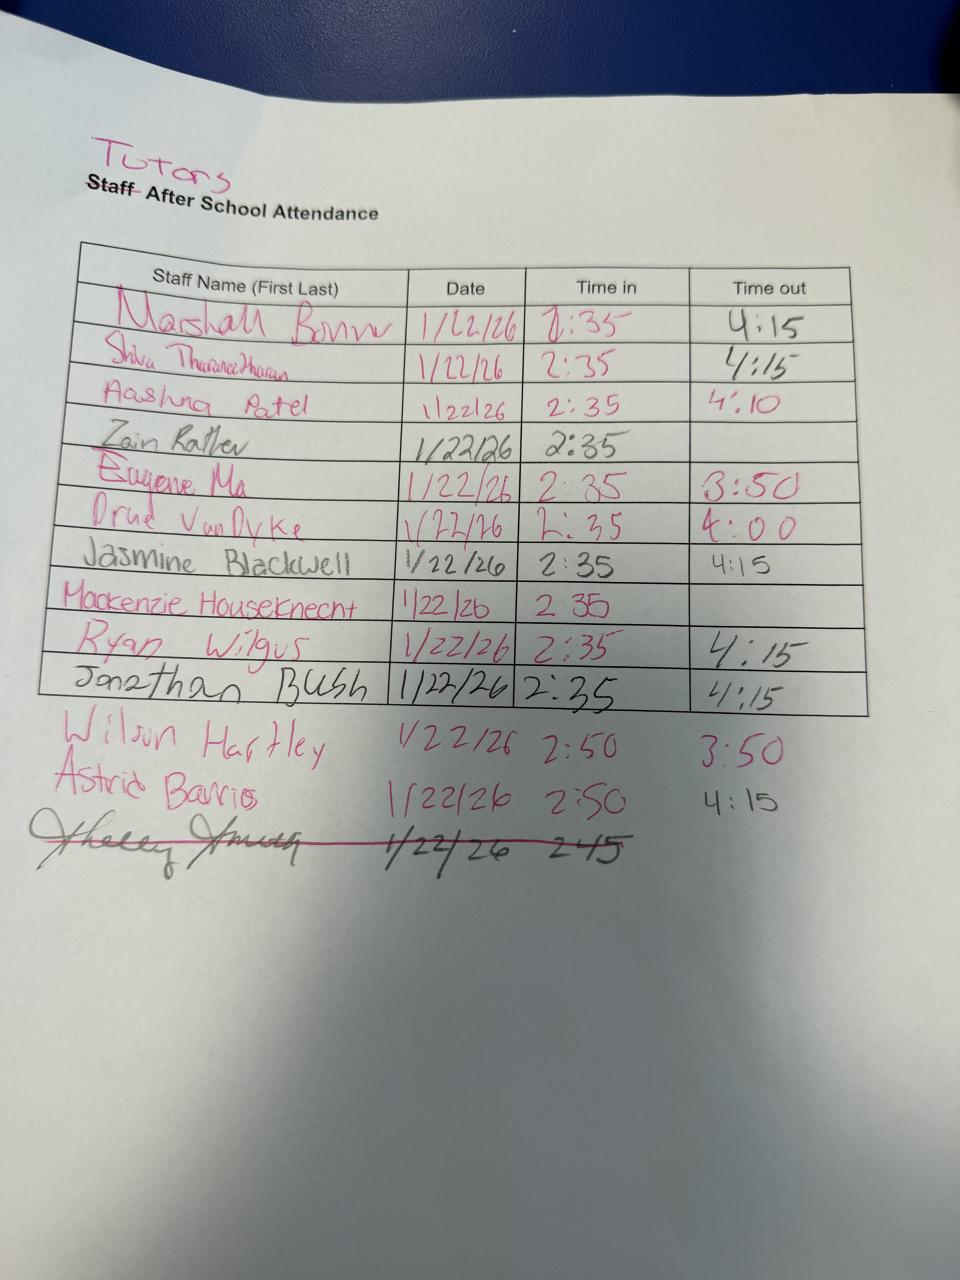 Tutors
Staff After School Attendance
Staff Name (First Last) Date Time in Time out
Marshall 1/22/26 2:35 4:15
Shiva Tharaneetharan 1/22/26 2:35 4:15
Aashna Patel 1/22/26 2:35 4:10
Zain 1/22/26 2:35
Eugene Ma 1/22/26 2:35 3:50
VanDyke 1/22/26 2:35 4:00
Jasmine Blackwell 1/22/26 2:35 4:15
Mackenzie Houseknecht 1/22/26 2:35
Ryan Wilgus 1/22/26 2:35 4:15
Jonathan Bush 1/22/26 2:35 4:15
Wilson Hartley 1/22/26 2:50 3:50
Astrid Barrios 1/22/26 2:50 4:15
Shelly Smith 1/22/26 245